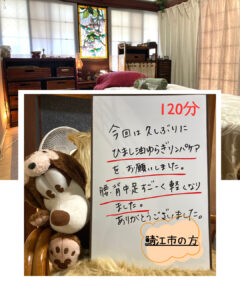 120分
今回は久しぶりに
ひまし油ゆらぎリンパケア
をお願いしました。
腰背中足すご〜く軽くなり
ました。
ありがとうございました。
鯖江市の方